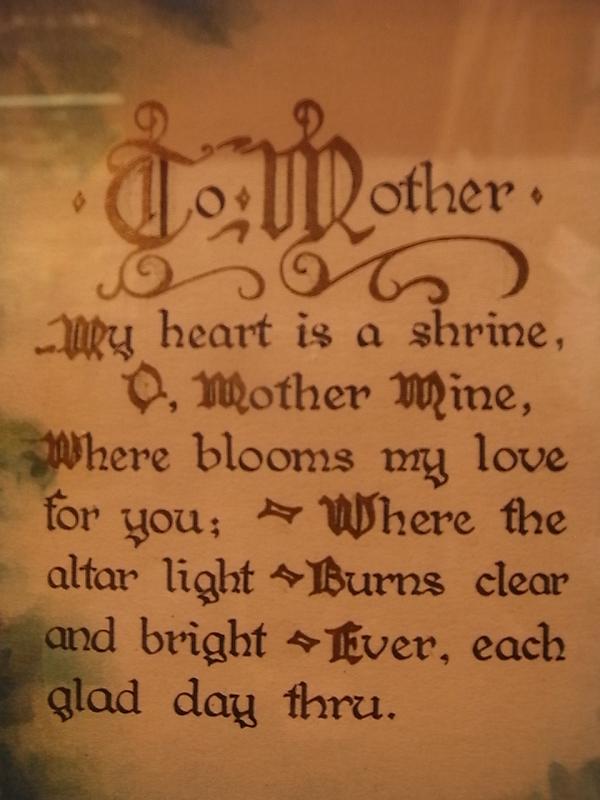 To Mother
My heart is a shrine,
O, Mother Mine,
Where blooms my love
for you; Where the
altar light Burns clear
and bright Ever, each
glad day thru.